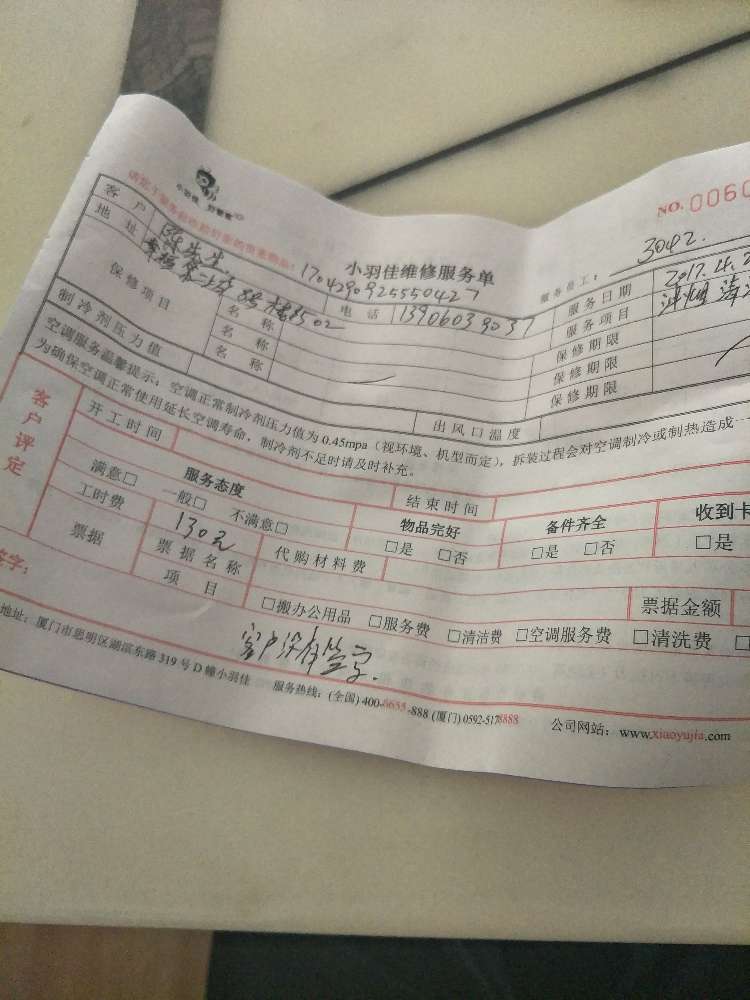 小羽佳 好管家
NO. 0060
请您于服务前收拾好家的贵重物品:
17042909255550427
小羽佳维修服务单
服务员工: 3042.
客户 陈先生 电话 13906039037 服务日期 2017.4.2
地址 8号楼1502 服务项目
保修项目 名称 保修期限
名称 保修期限
名称 保修期限
制冷剂压力值 出风口温度
空调服务温馨提示:空调正常制冷剂压力值为0.45mpa(视环境、机型而定),拆装过程会对空调制冷或制热造成一
为确保空调正常使用延长空调寿命,制冷剂不足时请及时补充。
客户评定
开工时间 结束时间
服务态度 物品完好 备件齐全 收到卡
满意□ 一般□ 不满意□ □是 □否 □是 □否 □是
工时费 130元 代购材料费
票据 票据名称 票据金额
项目 □搬办公用品 □服务费 □清洁费 □空调服务费 □清洗费 □
签字: 客户没有签字.
地址:厦门市思明区湖滨东路319号D幢小羽佳 服务热线:(全国)400-6655-888 (厦门)0592-5178888 公司网站:www.xiaoyujia.com